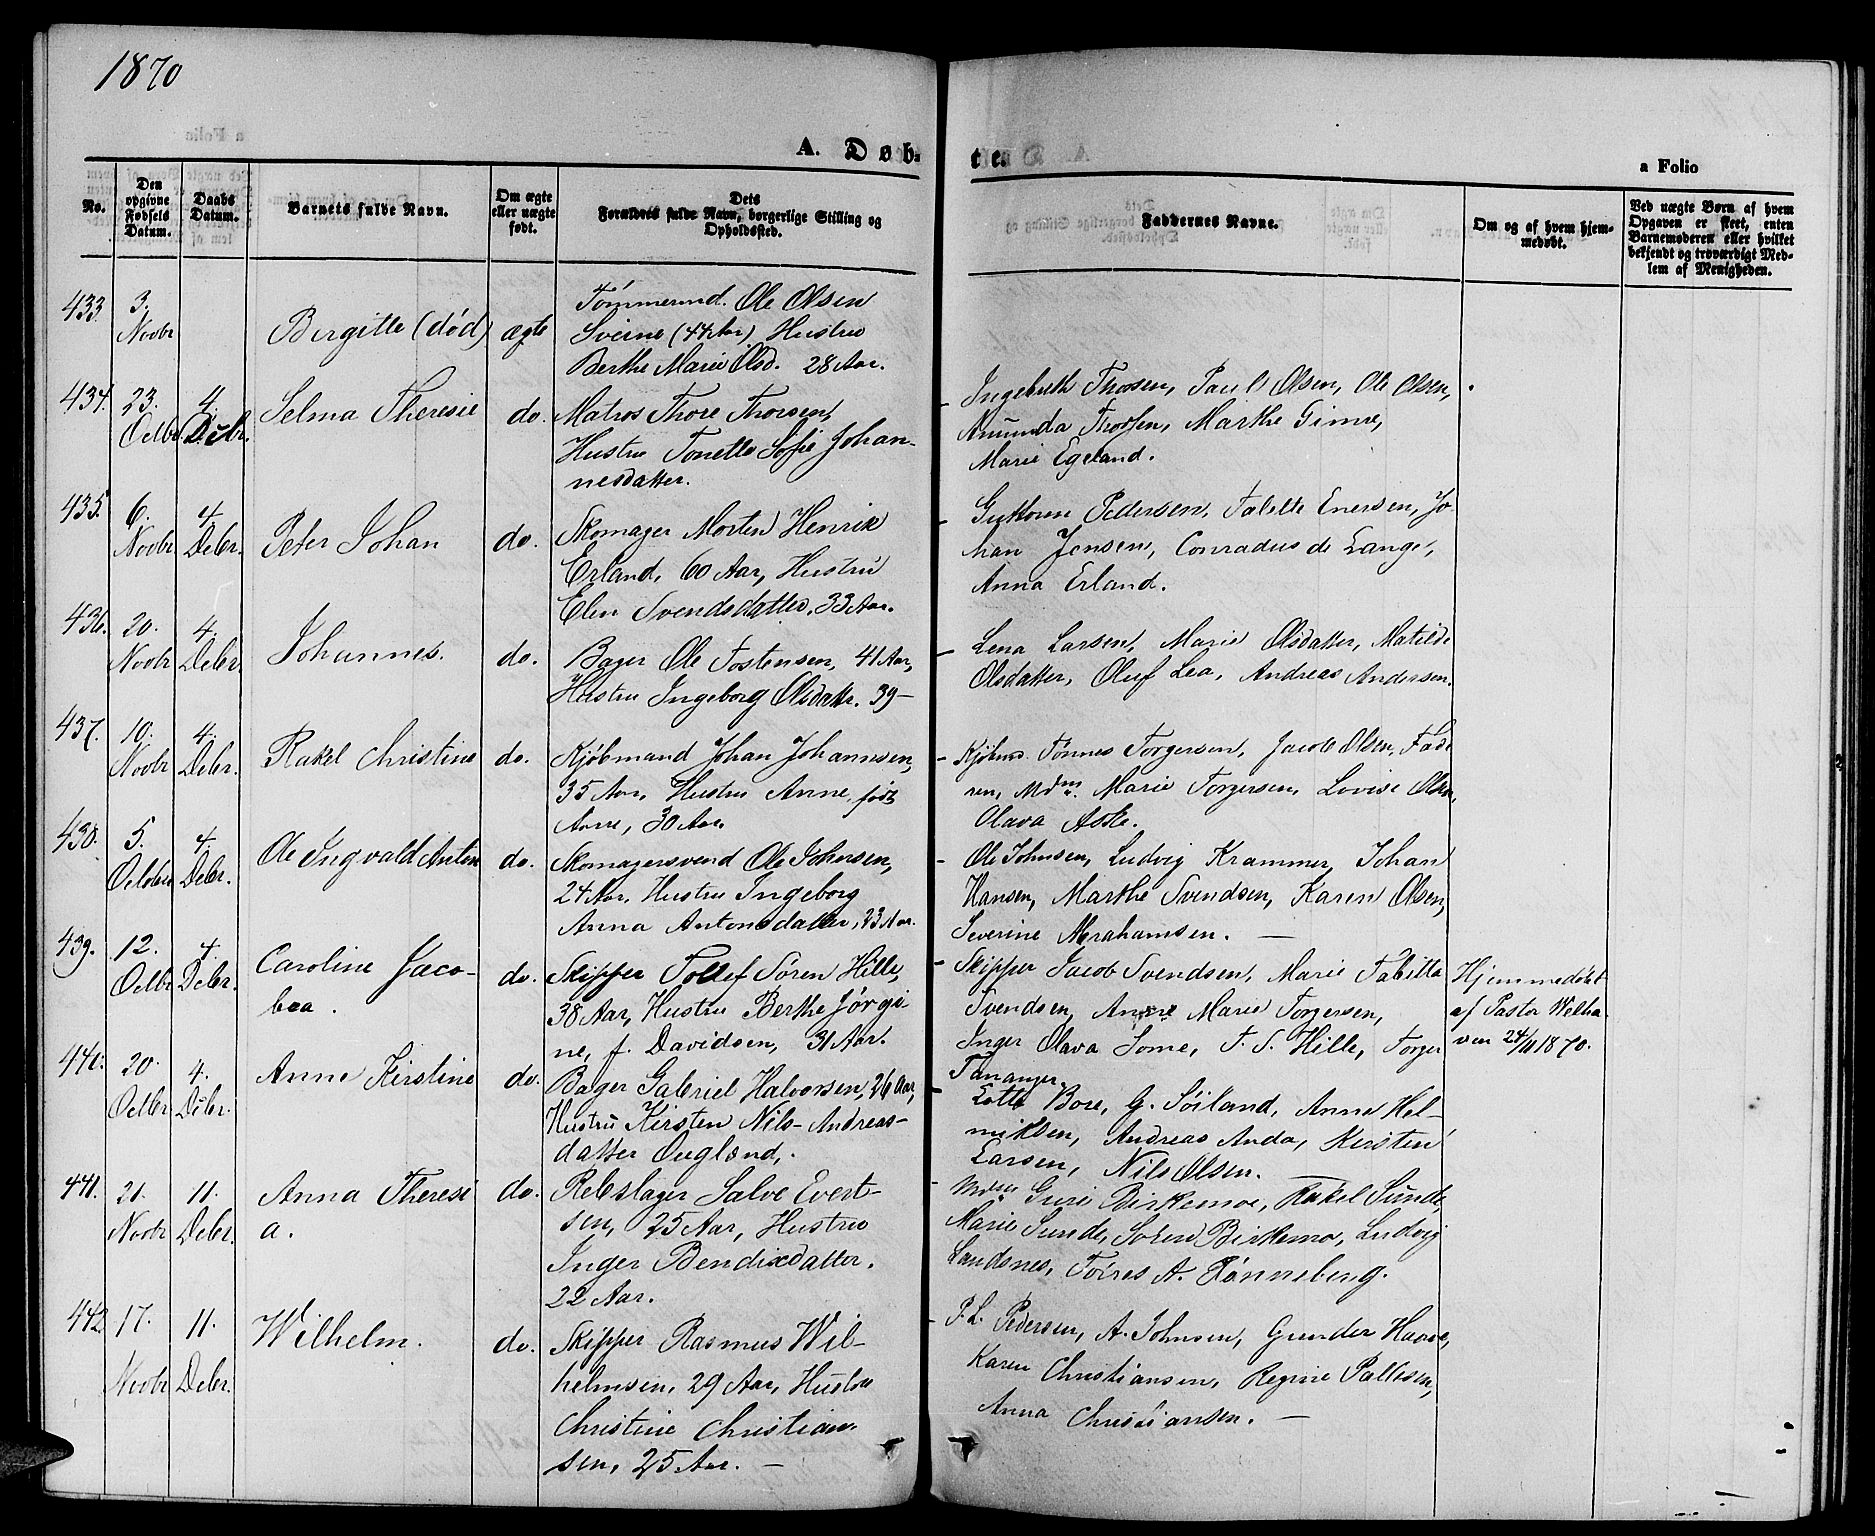 1870
A. Døb-
te.
a Folio
No.
Den opgivne Fødsels Datum.
Daabs Datum.
Barnets fulde Navn.
Om ægte eller uægte født.
Dets Forældres fulde Navn, borgerlige Stilling og Opholdssted.
Faddernes Navne.
Om og af hvem hjem-
medøbt.
Ved uægte Børn af hvem
Opgaven er skeet, enten
Barnemoderen eller hvilket
bekjendt og troværdigt Med-
lem af Menigheden.
433. 3. Novbr Birgitte (død) ægte
Tømmermd. Ole Olsen
Sveine (44 Aar) Hustru
Berthe Marie Olsd. 28 Aar.
434. 23. Octbr 4. Debr. Selma Theresie do.
Matros Thore Thorsen,
Hustru Tonette Sofie Johan-
nesdatter.
Ingebreth Thorsen, Paul Olsen, Ole Olsen,
Amunda Thorsen, Marthe Gimre,
Marie Egeland.
435. 6. Novbr 4. Debr. Peter Johan do.
Skomager Morten Henrik
Erland, 60 Aar, Hustru
Elen Svendsdatter, 33 Aar.
Guttorm Pedersen, Talette Enersen, Jo
han Jensen, Conradus de Lange,
Anna Erland.
436. 20. Novbr 4. Debr. Johannes. do.
Bager Ole Tostensen, 41 Aar,
Hustru Ingeborg Olsdatr. 39 —
Lena Larsen, Marie Olsdatter, Matilde
Olsdatter, Oluf Lea, Andreas Andersen.
437. 10. Novbr 4. Debr. Rakel Christine do.
Kjøbmand Johan Johannesen,
35 Aar, Hustru Anne, født
Aarre, 30 Aar.
Kjøbmd. Tønnes Torgersen, Jacob Olsen, Fade
ren, Mdm. Marie Torgersen, Lovise Olsen,
Olava Aske.
438. 5. Octbr 4. Debr. Ole Ingvald Anton do.
Skomagersvend Ole Johnsen,
24 Aar, Hustru Ingeborg
Anna Antonsdatter, 23 Aar.
Ole Johnsen, Ludvig Krammer, Johan
Hansen, Marthe Svendsen, Karen Olsen,
Severine Abrahamsen. —
439. 12. Octbr 4. Debr. Caroline Jaco-
bea. do.
Skipper Tollef Sören Hille,
38 Aar, Hustru Berthe Jörgi
ne, f. Davidsen, 31 Aar.
Skipper Jacob Svendsen, Marie Tabitta
Svendsen, Anne Marie Torgersen,
Inger Olava Some, T. S. Hille, Torger
Tananger.
Hjemmedøbt
af Pastor Welha
ven 24/11 1870.
440. 20. Octbr 4. Debr. Anne Kirstine do.
Bager Gabriel Halvorsen, 26 Aar,
Hustru Kirsten Nils-Andreas-
datter Ougland.
Lotte Bore, G. Söiland, Anne Hel-
miksen, Andreas Anda, Kirsten
Larsen, Nils Olsen.
441. 21. Novbr 11. Debr. Anna Theresi
a. do.
Rebslager Salve Evert-
sen, 25 Aar, Hustru
Inger Bendixdatter,
22 Aar.
Mdm Guri Birkemoe, Rakel Sunde,
Marie Sunde, Sören Birkemo, Ludvig
Landsnes, Törres A. Rönneberg.
442. 17. Novbr 11. Debr. Wilhelm. do.
Skipper Rasmus Wil-
helmsen, 29 Aar, Hustru
Christine Christian-
sen, 25 Aar. —
P. L. Pedersen, A. Johnsen, Gunder Haave,
Karen Christiansen, Regine Pallesen,
Anna Christiansen. —